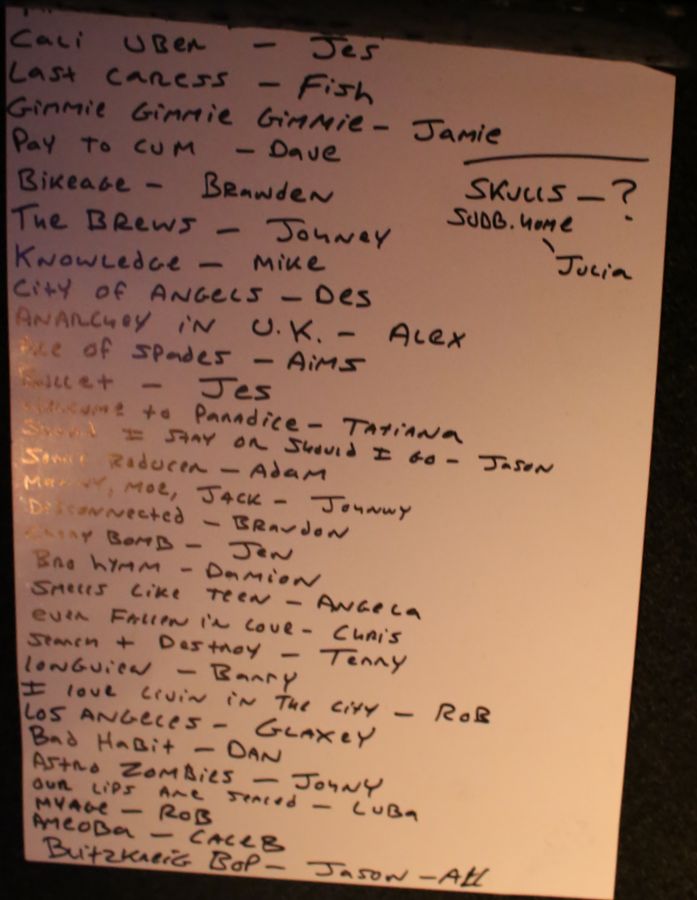 Cali UBer - Jes
Last Caress - Fish
Gimmie Gimmie Gimmie - Jamie
Pay to Cum - Dave
Bikeage - Branden
The Brews - Johney
Knowledge - Mike
City of Angels - Des
Anarchoy in U.K. - Alex
Ace of Spades - Aims
Bullet - Jes
Welcome to Paradice - Tatiana
Should I Stay or Should I Go - Jason
Sonic Roducer - Adam
Manny, Moe, Jack - Johnny
Disconnected - Brandon
Cherry Bomb - Jen
Bro Hymm - Damion
Smells Like Teen - Angela
Ever Fallen in Love - Chris
Search + Destroy - Terry
Longview - Barry
I Love Livin in the City - Rob
Los Angeles - Glaxey
Bad Habit - Dan
Astro Zombies - Johny
Our Lips Are Sealed - Luba
Myage - Rob
Ameoba - Caleb
Blitzkreig Bop - Jason - All
Skulls - ?
Julia